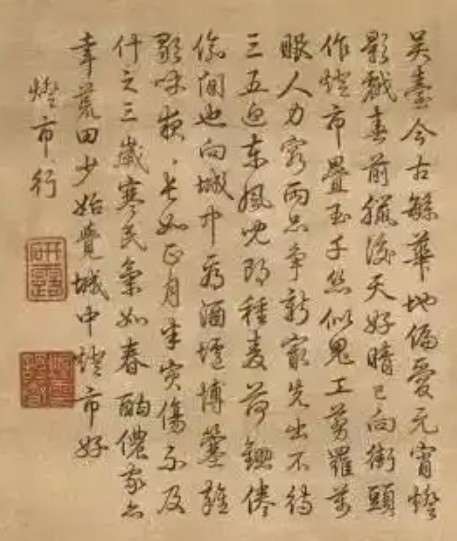 吳臺今古繁華地偏愛元宵燈
影戲春前臘後天好晴已向街頭
作燈市疊玉千絲似鬼工剪羅萬
眼人力窮兩品爭新最先出不待
三五迎東風兒郎種麥荷鋤倦
偷閒也向城中看酒壚博簺雜
歌呼夜〻長如正月半灾傷不及
什之三歲寒民氣如春酣儂家亦
幸荒田少始覺城中燈市好
燈市行